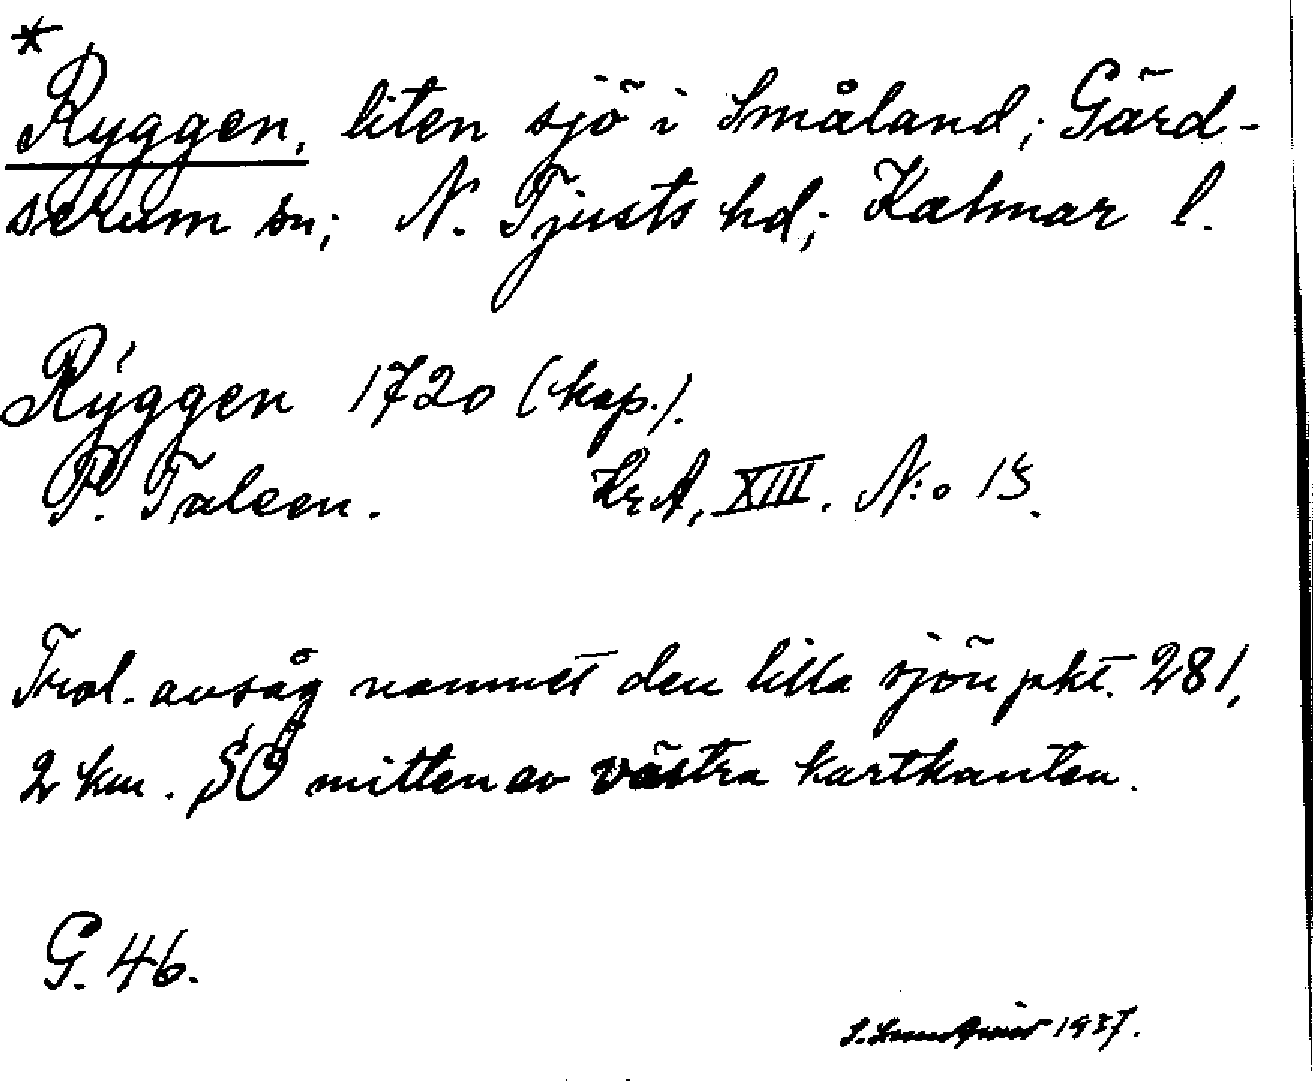 *
Ryggen, liten sjö i Småland; Gärd-
serum sn; N. Tjusts hd; Kalmar l.
Rÿggen 1720 (kop.).
P. Taleen. KrA, XIII. N:o 15.
Trol. avsåg namnet den lilla sjön pkt. 281,
2 km. SÖ mitten av västra kartkanten.
G. 46.
1937.